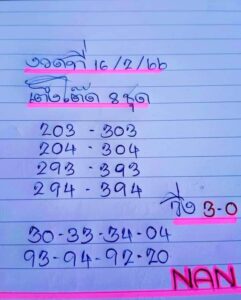 งวดที่ 16/2/66
เต็งโต๊ด 8 ชุด
203 - 303
204 - 304
293 - 393
294 - 394
วิ่ง 3-0
30-33-34-04
93-94-92-20
NAN